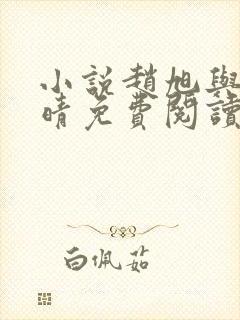 小説趙旭與
晴免費閱讀
白佩茹